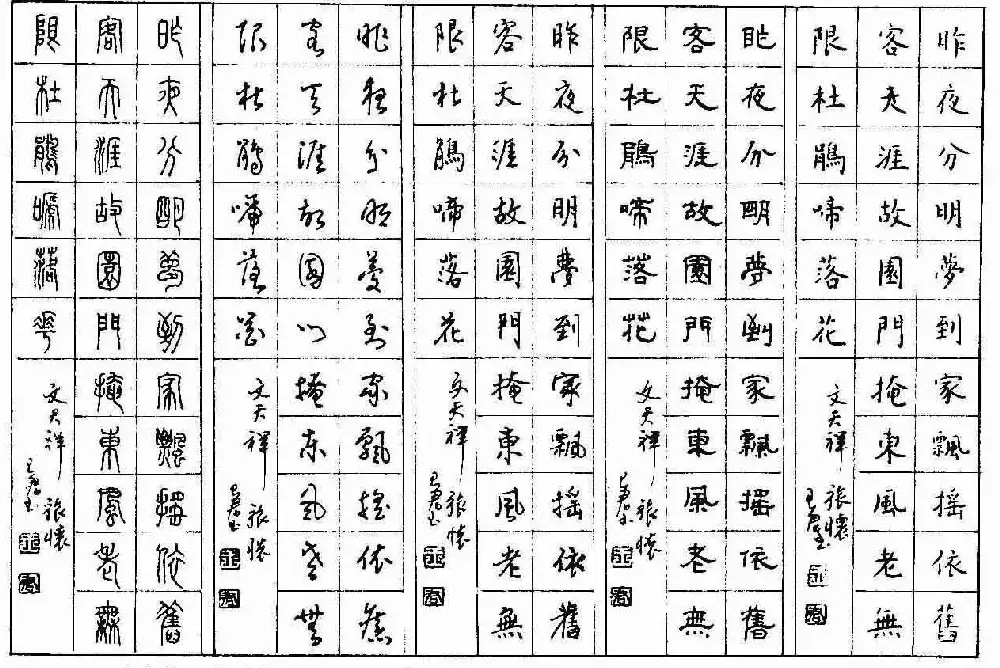 昨夜分明夢到家飄搖依舊
客天涯故園門掩東風老無
限杜鵑啼落花
文天祥 旅懷
昨夜分明夢到家飄搖依舊
客天涯故園門掩東風老無
限杜鵑啼落花
文天祥 旅懷
昨夜分明夢到家飄搖依舊
客天涯故園門掩東風老無
限杜鵑啼落花
文天祥 旅懷
昨夜分明夢到家飄搖依舊
客天涯故園門掩東風老無
限杜鵑啼落花
文天祥 旅懷
昨夜分明夢到家飄搖依舊
客天涯故園門掩東風老無
限杜鵑啼落花
文天祥 旅懷